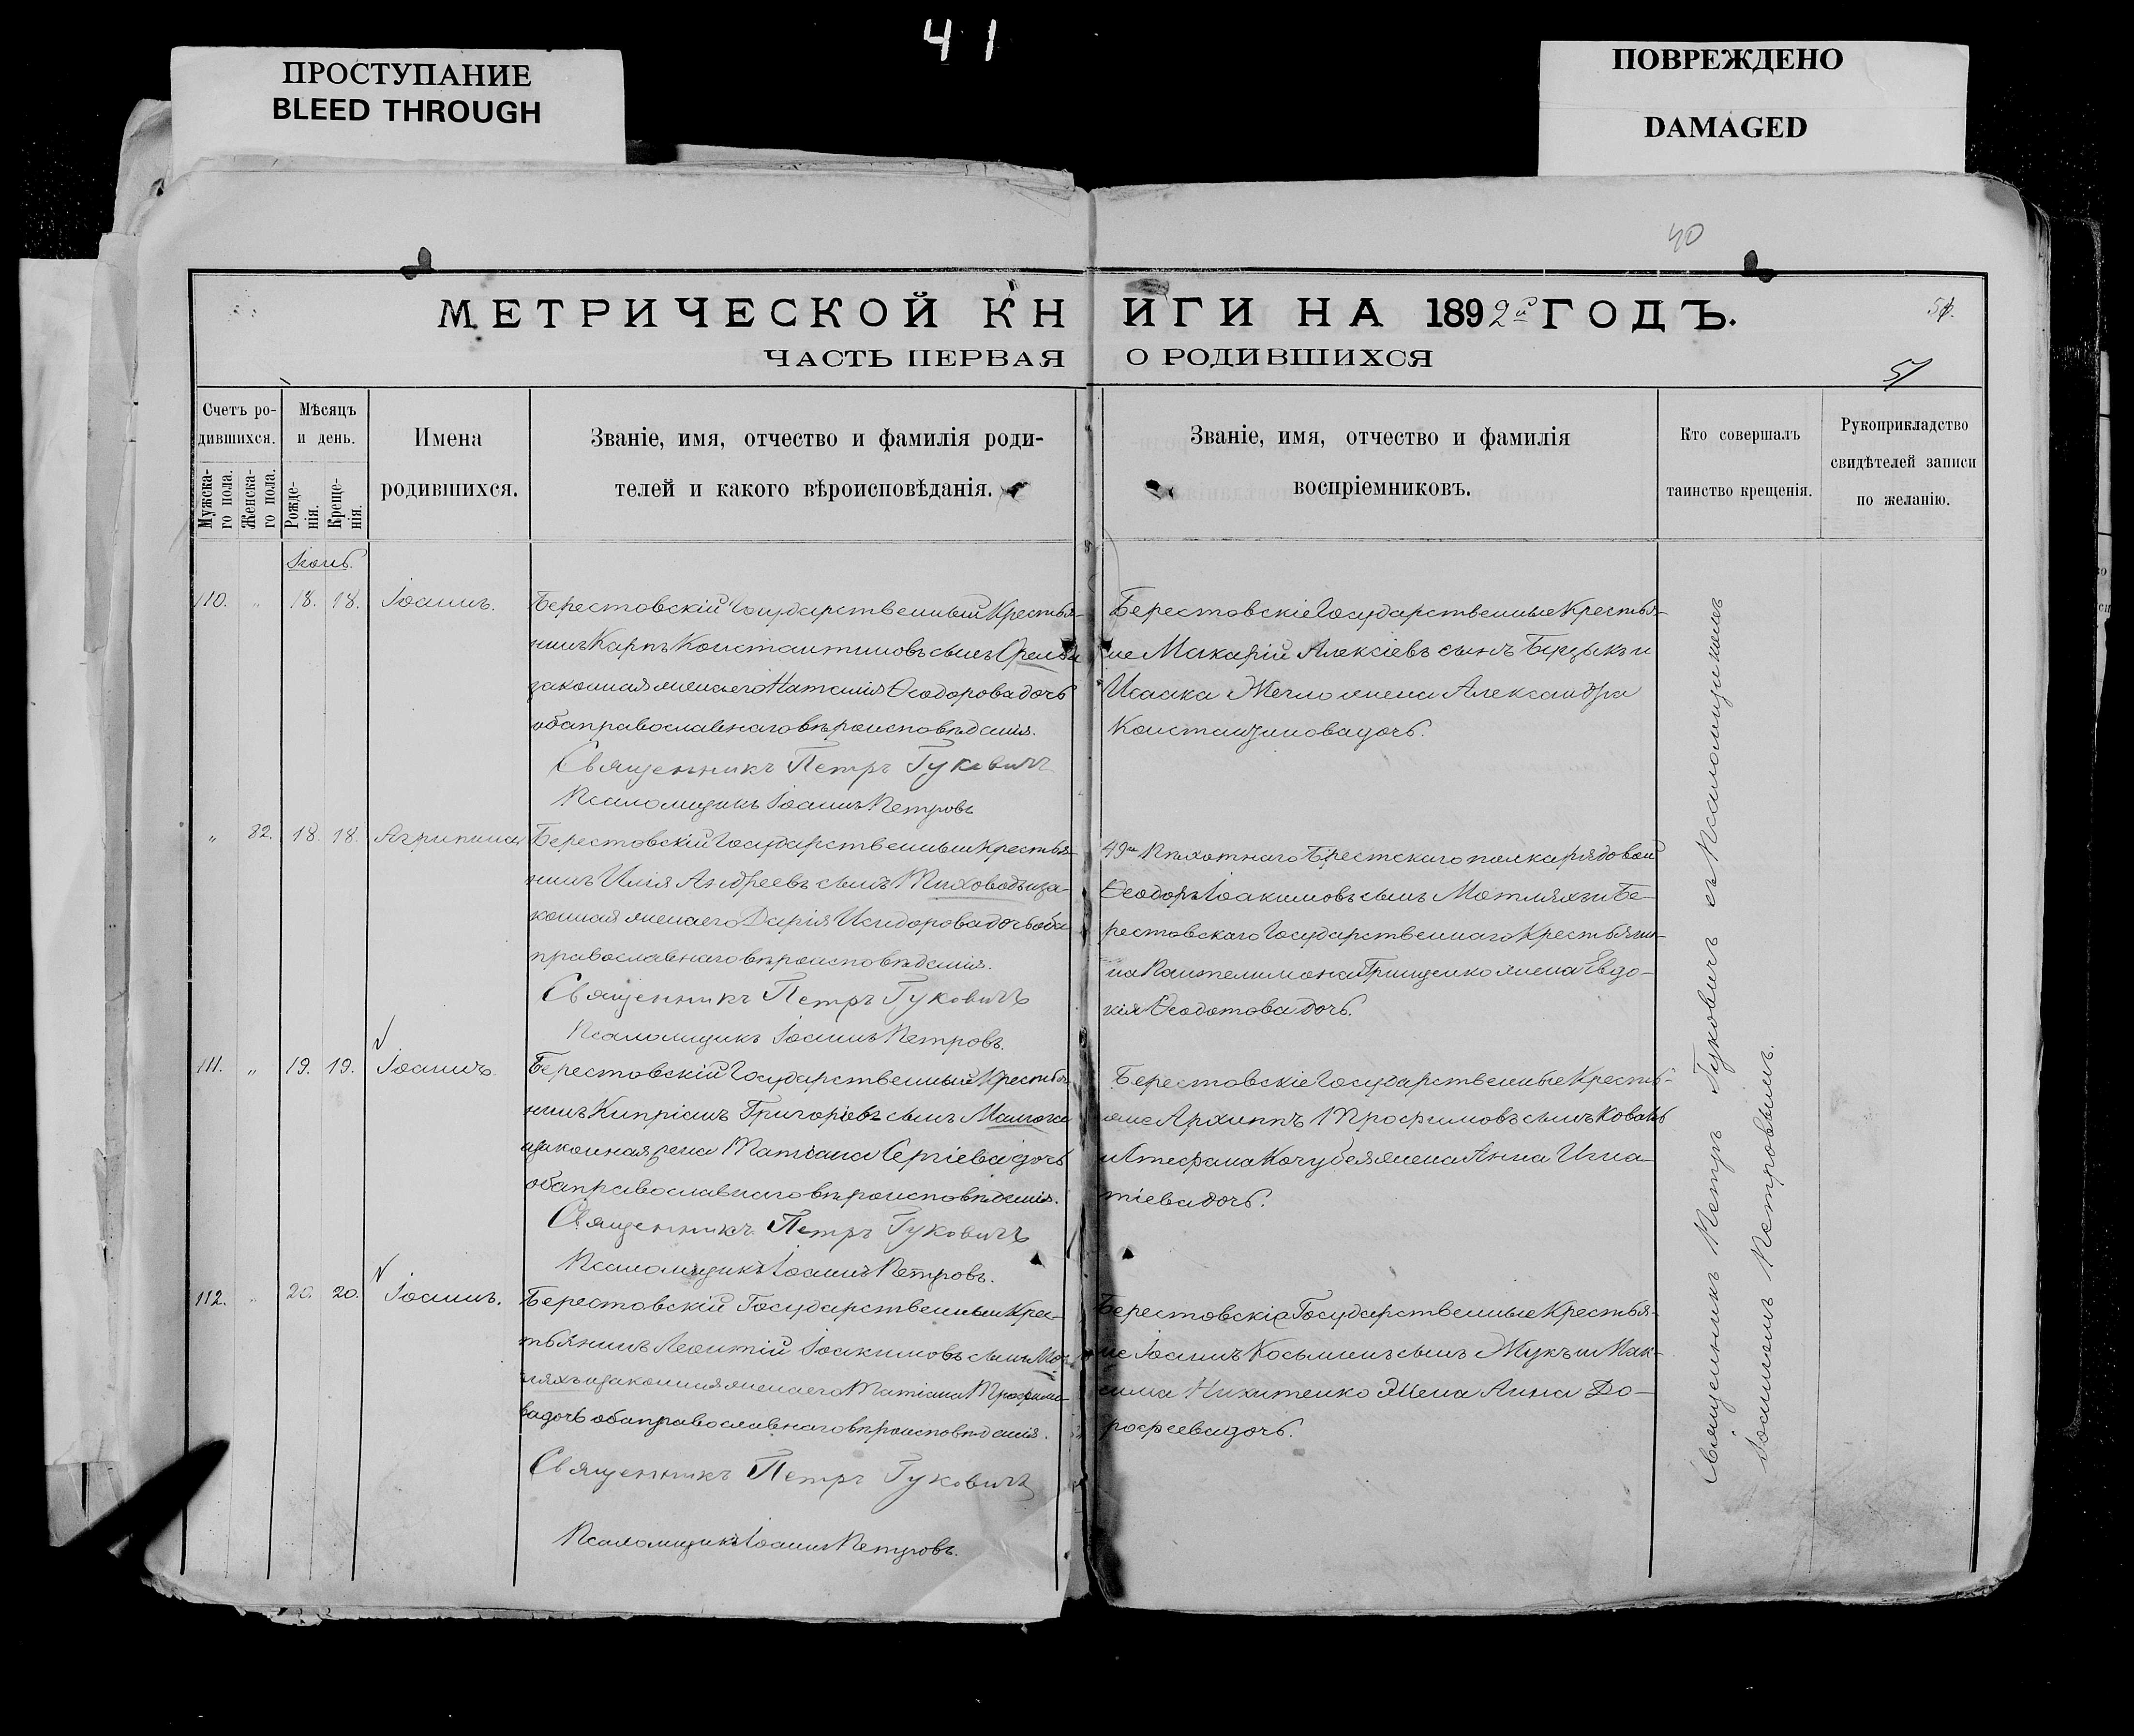 41
ПРОСТУПАНИЕ
BLEED THROUGH
ПОВРЕЖДЕНО
DAMAGED
40
МЕТРИЧЕСКОЙ КНИГИ НА 1892й ГОДЪ.
51
ЧАСТЬ ПЕРВАЯ О РОДИВШИХСЯ
Счетъ ро-
дившихся.
Мужска-
го пола.
Женска-
го пола.
Мѣсяцъ
и день.
Рожде-
нія.
Креще-
нія.
Имена
родившихся.
Званіе, имя, отчество и фамилія роди-
телей и какого вѣроисповѣданія.
Званіе, имя, отчество и фамилія
воспріемниковъ.
Кто совершалъ
таинство крещенія.
Рукоприкладство
свидѣтелей записи
по желанію.
Іюнь.
110. " 18. 18. Іоаннъ.
Берестовскій Государственный Крестья-
нинъ Карпъ Константиновъ сынъ
законная жена его Наталія Ѳеодорова дочь
оба православнаго вѣроисповѣданія.
Священникъ Петръ Гуковичъ
Псаломщикъ Іоаннъ Петровъ
Берестовскіе Государственные Крестья-
не Макарій Алексіевъ сынъ и
Исаака жена Александра
Константинова дочь.
" 82. 18. 18. Агрипина
Берестовскій Государственный Крестья-
нинъ Илія Андреевъ сынъ и за-
конная жена его Дарія Исидорова дочь оба
православнаго вѣроисповѣданія.
Священникъ Петръ Гуковичъ
Псаломщикъ Іоаннъ Петровъ.
49го Пѣхотнаго Брестскаго полка рядовой
Ѳеодоръ Іоакимовъ сынъ Мотляхъ и Бе-
рестовскаго Государственнаго Крестьяни-
на Пантелимона Грищенко жена Евдо-
кія Ѳеодотова дочь.
111. " 19. 19. Іоаннъ.
Берестовскій Государственный Крестья-
нинъ Кипріанъ Григоріевъ сынъ
и законная жена Татіана Сергіева дочь
оба православнаго вѣроисповѣданія.
Священникъ Петръ Гуковичъ
Псаломщикъ Іоаннъ Петровъ.
Берестовскіе Государственные Кресть-
яне Архиппъ Трофимовъ сынъ Коваль
и Стефана Кочубея жена Анна Игна-
тіева дочь.
112. " 20. 20. Іоаннъ.
Берестовскій Государственный Крес-
тьянинъ Леонтій Іоакимовъ сынъ Мот-
ляхъ и законная жена его Татіана Трофимо-
ва дочь оба православнаго вѣроисповѣданія.
Священникъ Петръ Гуковичъ
Псаломщикъ Іоаннъ Петровъ.
Берестовскіе Государственные Крестья-
не Іоаннъ Косьминъ сынъ Жукъ и Мак-
сима Никитенко жена Анна До-
рофеева дочь.
Священникъ Петръ Гуковичъ съ Псаломщикомъ
Іоанномъ Петровымъ.